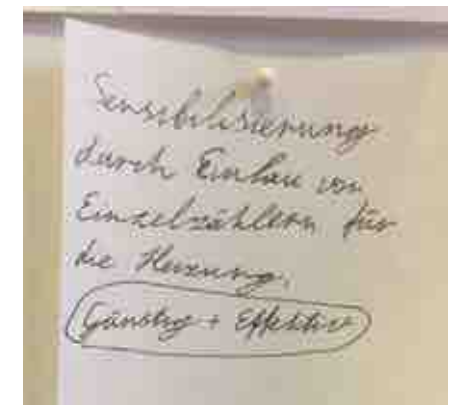 Sensibilisierung
durch Einbau von
Einzelzählern für
die Heizung.
Günstig + Effektiv